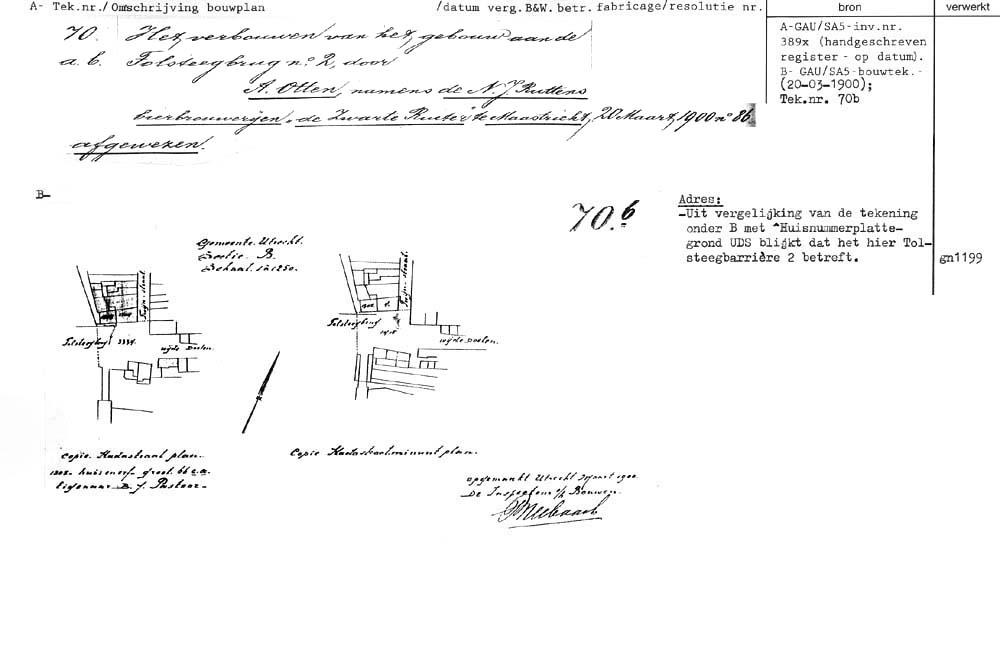 A- Tek.nr./ Omschrijving bouwplan /datum verg.B&W.betr.fabricage/resolutie nr. bron verwerkt
70. Het verbouwen van het gebouw aan de
a. b. Tolsteegbrug no. 2, door
A. Otten, namens de N. J. Ruttens
bierbrouwerijen „de Zwarte Ruiter" te Maastricht, 20 Maart, 1900 no 86
afgewezen.
A-GAU/SA5-inv.nr.
389x (handgeschreven
register - op datum).
B- GAU/SA5-bouwtek.-
(20-03-1900);
Tek.nr. 70b
B-
70.b
Adres:
-Uit vergelijking van de tekening
onder B met "Huisnummerplatte-
grond UDS blijkt dat het hier Tol-
steegbarrière 2 betreft.
gn1199
Gemeente Utrecht.
Sectie B.
Schaal 1 à 1250.
Tolsteegbrug
wijde Doelen.
Tolsteegbrug
wijde Doelen.
Copie Kadastraal plan.
huis en erf groot 66 c.a.
Eigenaar J. Pastoor
Copie Kadastraal minuut plan.
opgemaakt Utrecht 1900
De Inspecteur Bouwen.